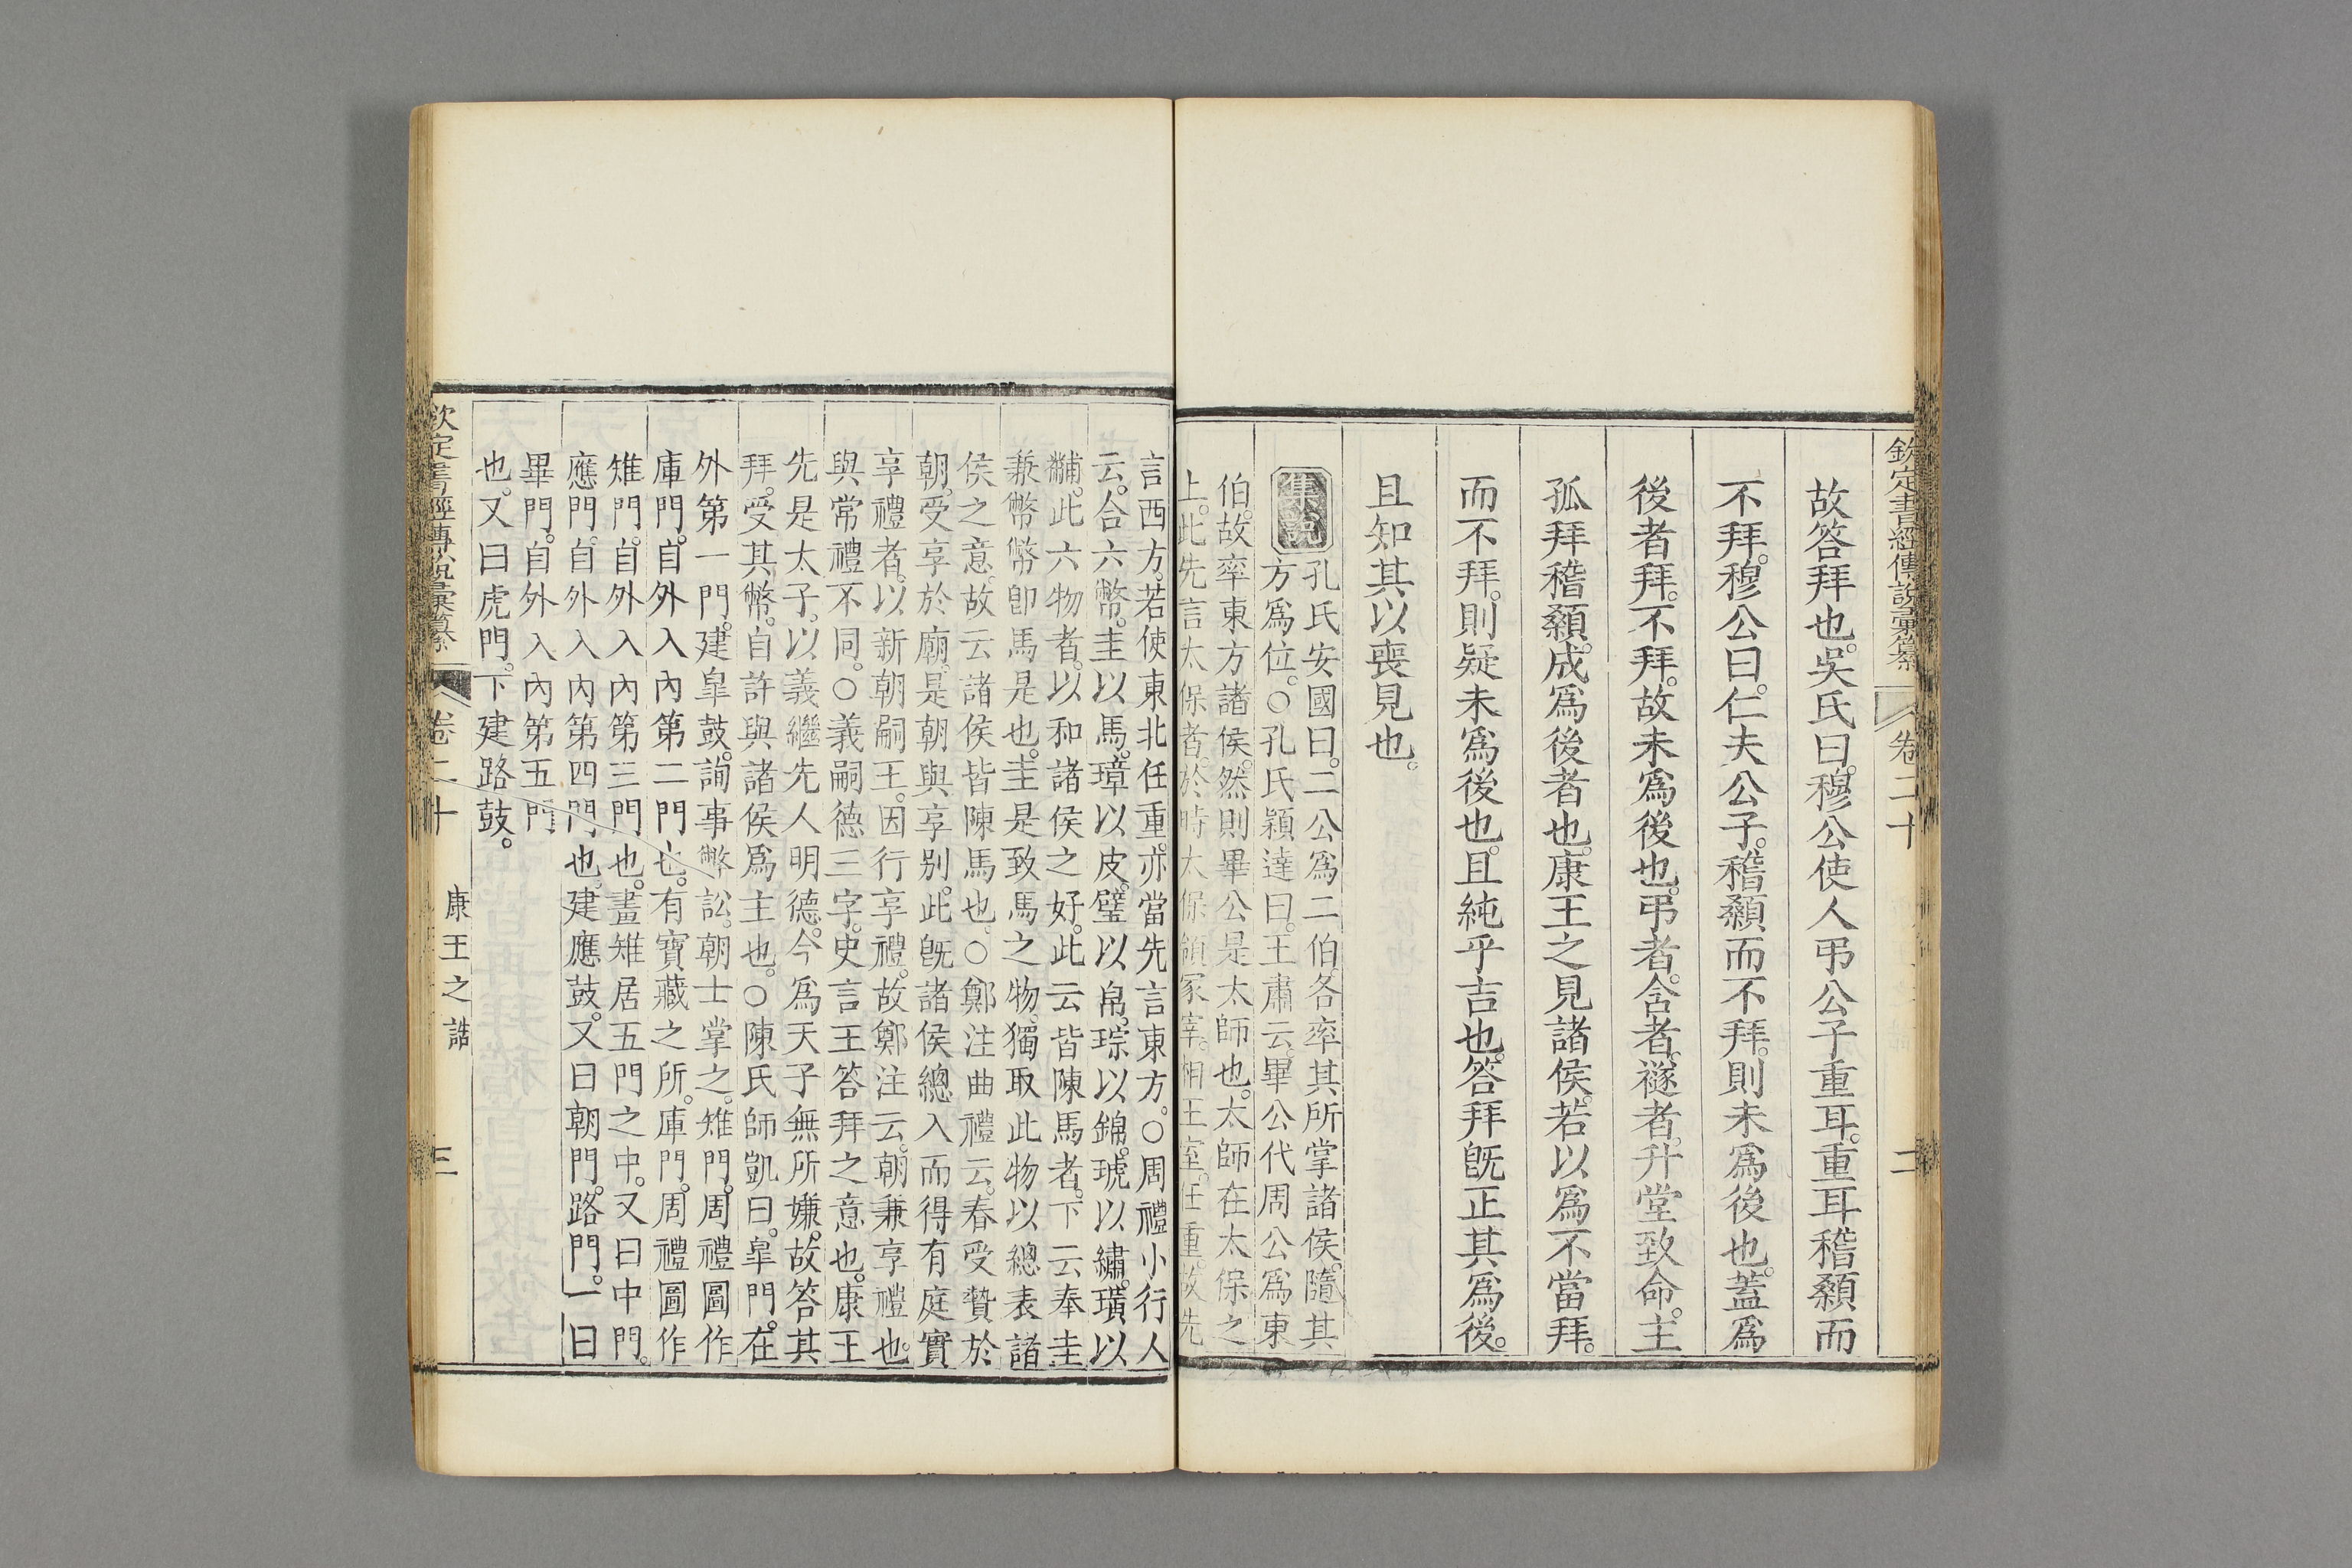 欽定書經傳說彙纂 卷二十 二
故答拜也。吳氏曰。穆公使人弔公子重耳。重耳稽顙而
不拜。穆公曰。仁夫公子。稽顙而不拜。則未爲後也。蓋爲
後者拜。不拜。故未爲後也。弔者。含者。襚者。升堂致命。主
孤拜稽顙。成爲後者也。康王之見諸侯。若以爲不當拜。
而不拜。則疑未爲後也。且純乎吉也。答拜旣正其爲後。
且知其以喪見也。
集說
孔氏安國曰。二公爲二伯。各率其所掌諸侯。隨其
方爲位。○孔氏穎達曰。王肅云。畢公代周公爲東
伯。故率東方諸侯。然則畢公是太師也。太師在太保之
上。此先言太保者。於時太保領冢宰。相王室。任重。故先
言西方。若使東北任重。亦當先言東方。○周禮小行人
云。合六幣。圭以馬。璋以皮。璧以帛。琮以錦。琥以繡。璜以
黼。此六物者。以和諸侯之好。此云皆陳馬者。下云奉圭
兼幣。幣卽馬是也。圭是致馬之物。獨取此物以總表諸
侯之意。故云諸侯皆陳馬也。○鄭注曲禮云。春受贄於
朝。受享於廟。是朝與享別。此旣諸侯總入而得有庭實
享禮者。以新朝嗣王。因行享禮。故鄭注云。朝兼享禮也。
與常禮不同。○義嗣德三字。史言王答拜之意也。康王
先是太子。以義繼先人明德。今爲天子無所嫌。故答其
拜。受其幣。自許與諸侯爲主也。○陳氏師凱曰。臯門。在
外第一門。建臯鼓。詢事弊訟。朝士掌之。雉門。周禮圖作
庫門。自外入內第二門也。有寶藏之所。庫門。周禮圖作
雉門。自外入內第三門也。畫雉居五門之中。又曰中門。
應門。自外入內第四門也。建應鼓。又曰朝門。路門。一曰
畢門。自外入內第五門
也。又曰虎門。下建路鼓。
欽定書經傳說彙纂 卷二十 康王之誥 三